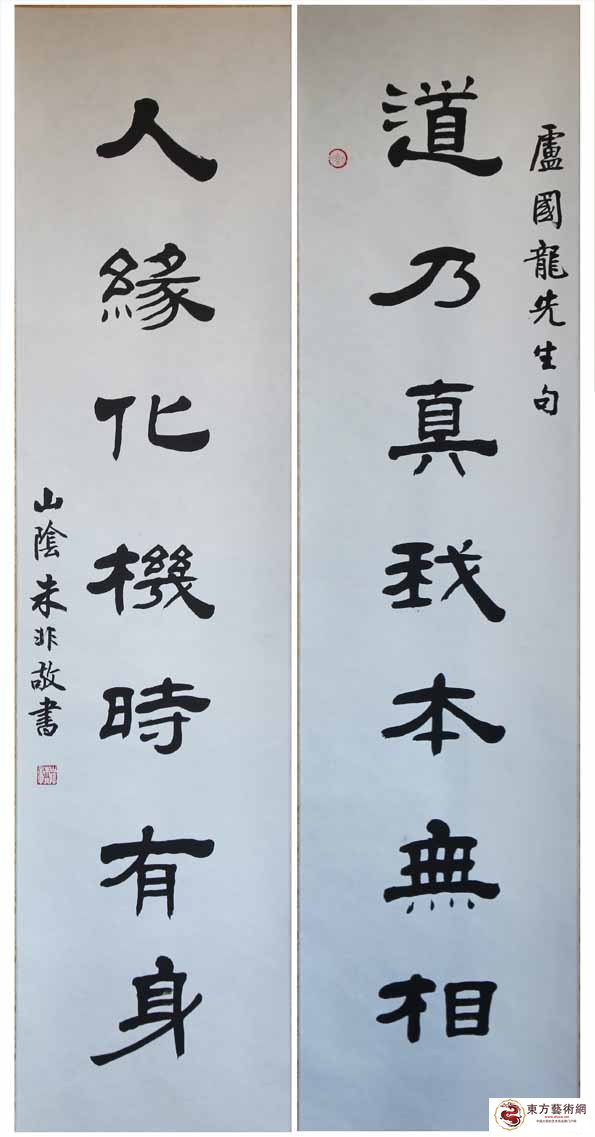 盧國龍先生句
道乃真我本無相
人緣化機時有身
山陰未非敬書
東方藝術網